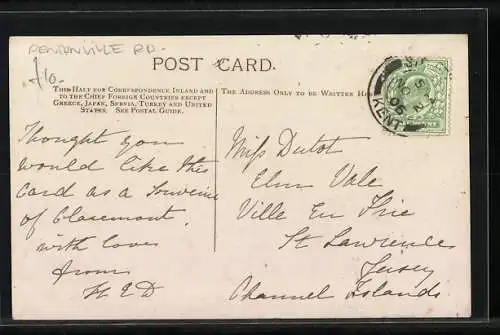 PENTONVILLE RD.
£10.
POST CARD.
THIS HALF FOR CORRESPONDENCE INLAND AND
TO THE CHIEF FOREIGN COUNTRIES EXCEPT
GREECE, JAPAN, SERVIA, TURKEY AND UNITED
STATES. SEE POSTAL GUIDE.
THE ADDRESS ONLY TO BE WRITTEN HERE
KENT
Thought you
would like this
Card as a Souvenir
of Claremont.
with love
from
Miss Dutot
Elm Vale
Ville En
St Lawrence
Jersey
Channel Islands